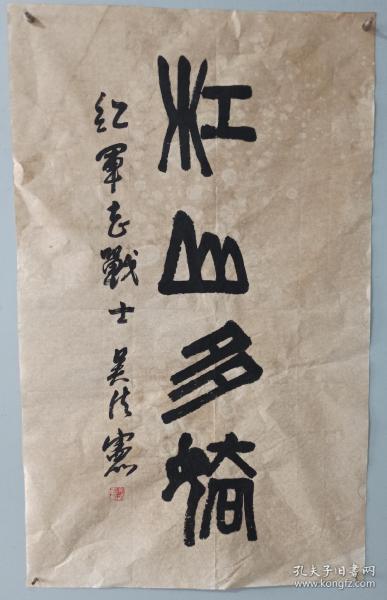 江山多娇
红軍老戰士 吴法憲
孔夫子旧书网
www.kongfz.com